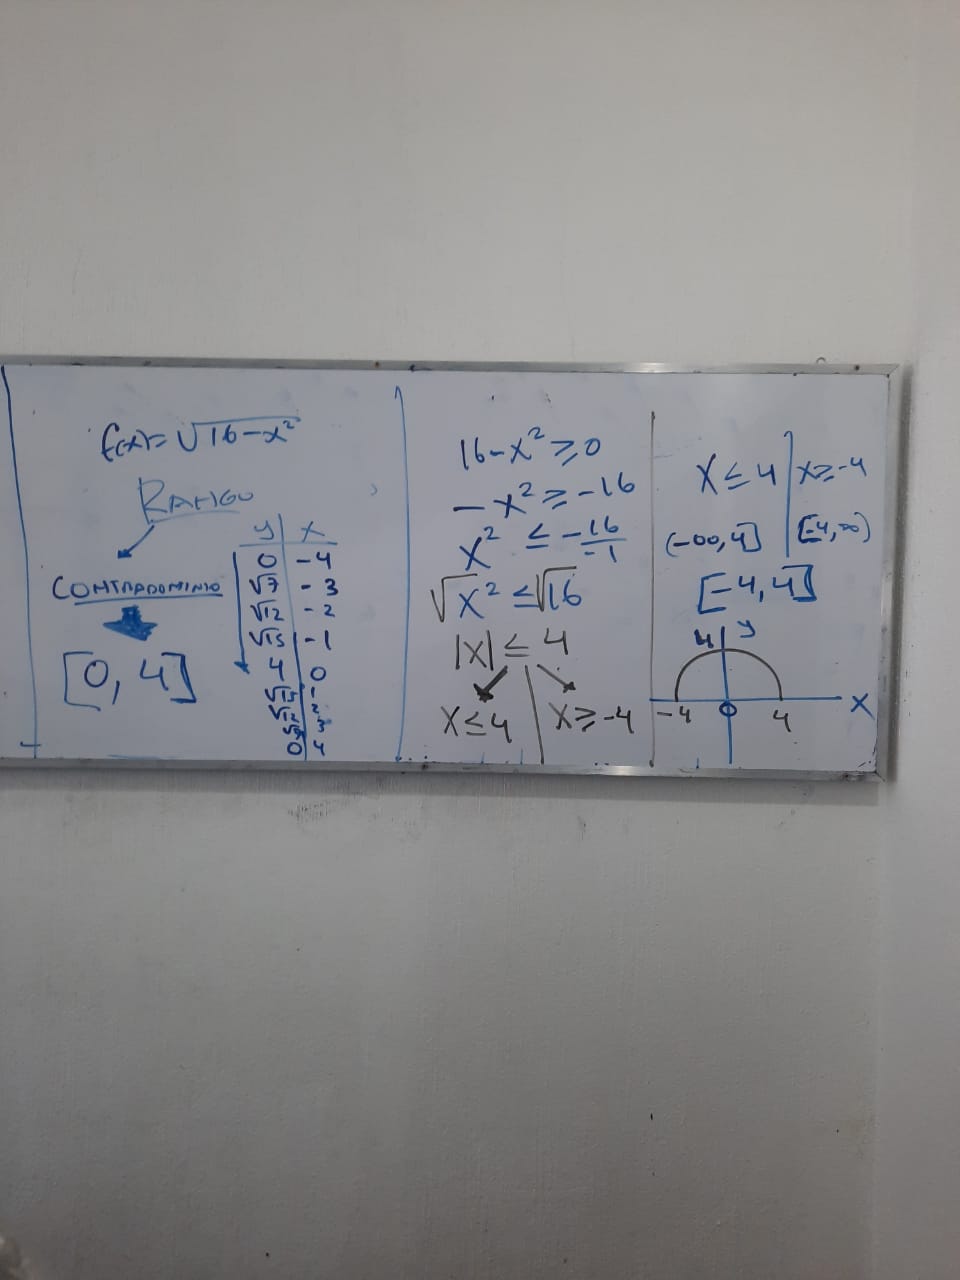 f(x)=√16-x²
RANGO
CONTRADOMINIO
[0, 4]
y | x
0 | -4
√7 | -3
√12 | -2
√15 | -1
4 | 0
√15 | 1
√12 | 2
√7 | 3
0 | 4
16-x² ≥ 0
-x² ≥ -16
x² ≤ -16/-1
√x² ≤ √16
|x| ≤ 4
x ≤ 4 | x ≥ -4
x ≤ 4 | x ≥ -4
(-∞, 4] | [-4, ∞)
[-4, 4]
4 y
-4 0 4 x